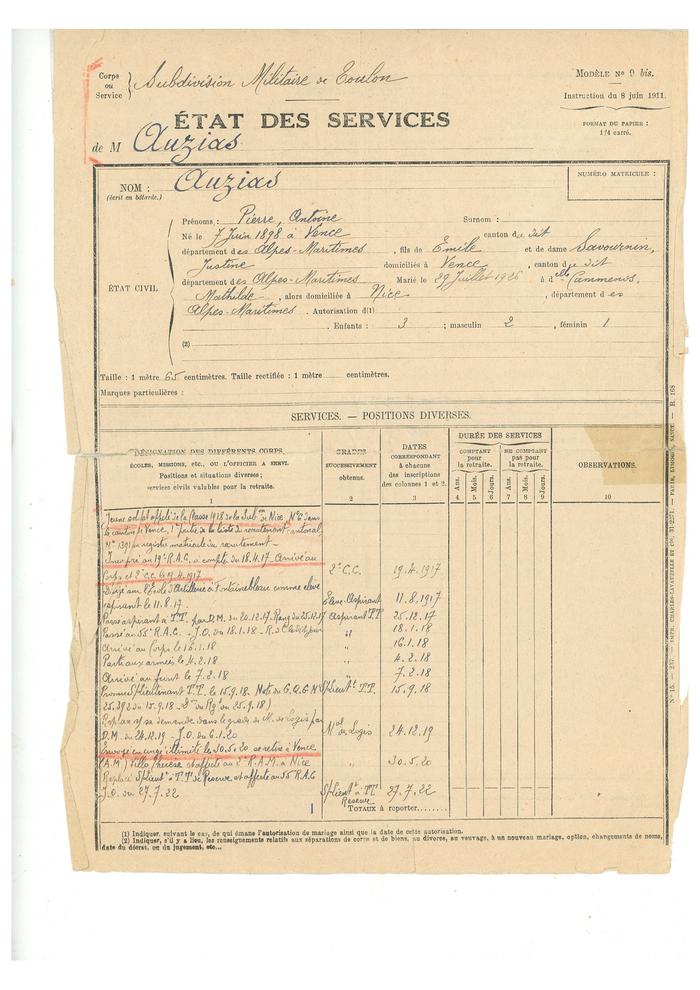 Corps
ou
Service
Subdivision Militaire de Toulon
MODÈLE N° 9 bis.
Instruction du 8 juin 1911.
FORMAT DU PAPIER :
1/4 carré.
ÉTAT DES SERVICES
de M Auzias
NOM : Auzias
(écrit en bâtarde.)
NUMÉRO MATRICULE :
ÉTAT CIVIL
Prénoms : Pierre, Antoine Surnom :
Né le 7 Juin 1898 à Vence canton du dit
département des Alpes-Maritimes, fils de Emile et de dame Savournin,
Justine domiciliés à Vence, canton du dit
département des Alpes-Maritimes Marié le 29 Juillet 1926 à d^elle Cammenos,
Mathilde, alors domiciliée à Nice, département des
Alpes-Maritimes. Autorisation d(1)
Enfants : 3 ; masculin 2, féminin 1
(2)
Taille : 1 mètre 65 centimètres. Taille rectifiée : 1 mètre centimètres.
Marques particulières :
SERVICES. — POSITIONS DIVERSES.
DÉSIGNATION DES DIFFÉRENTS CORPS,
ÉCOLES, MISSIONS, etc., OU L'OFFICIER A SERVI.
Positions et situations diverses;
services civils valables pour la retraite.
1
GRADES
SUCCESSIVEMENT
obtenus.
2
DATES
CORRESPONDANT
à chacune
des inscriptions
des colonnes 1 et 2.
3
DURÉE DES SERVICES
COMPTANT
pour
la retraite.
NE COMPTANT
pas pour
la retraite.
Ans. Mois. Jours. Ans. Mois. Jours.
4 5 6 7 8 9
OBSERVATIONS.
10
Jeune soldat appelé de la classe 1918 de la Sub^on de Nice N° 20 dans
le canton de Vence, 1e partie de la liste de recrutement cantonal
N° 1391 au registre matricule du recrutement.
Incorporé au 19e R.A.C. à compter du 18.4.17. Arrivé au
Corps et 2e C.C. le 19.4.1917 2e C.C. 19.4.1917
Dirigé sur l'École d'Artillerie de Fontainebleau comme élève
aspirant le 11.8.17. Élève-Aspirant 11.8.1917
Passé aspirant à T.T. par D.M. du 20.12.17. Rang du 25.12.17 Aspirant TT 25.12.17
Passé au 55e R.A.C. - J.O. du 18.1.18 " 18.1.18
Arrivé au Corps le 16.1.18 " 16.1.18
Parti aux armées le 4.2.18 " 4.2.18
Arrivé au front le 7.2.18 " 7.2.18
Promu S/lieutenant T.T. le 15.9.18. Note du G.Q.G N° S/Lieut^t T.T. 15.9.18
25.392 du 15.9.18 - du Rg^t du 25.9.18)
Replacé sur sa demande dans le grade de M. de Logis par
D.M. du 24.12.19 - J.O. du 6.1.20 M^al des Logis 24.12.19
Envoyé en congé illimité le 30.5.20 se retire à Vence
(A.M) Villa Thérèse et affecté au 2e R.A.M. à Nice " 30.5.20
Replacé S/lieut^t à T.T de Réserve et affecté au 55 R.A.C
J.O. du 27.7.22 S/Lieut^t à TT 27.7.22
Reserve
TOTAUX à reporter........
(1) Indiquer, suivant le cas, de qui émane l'autorisation de mariage ainsi que la date de cette autorisation.
(2) Indiquer, s'il y a lieu, les renseignements relatifs aux séparations de corps et de biens, au divorce, au veuvage, à un nouveau mariage, option, changements de noms,
date du décret, ou du jugement, etc...